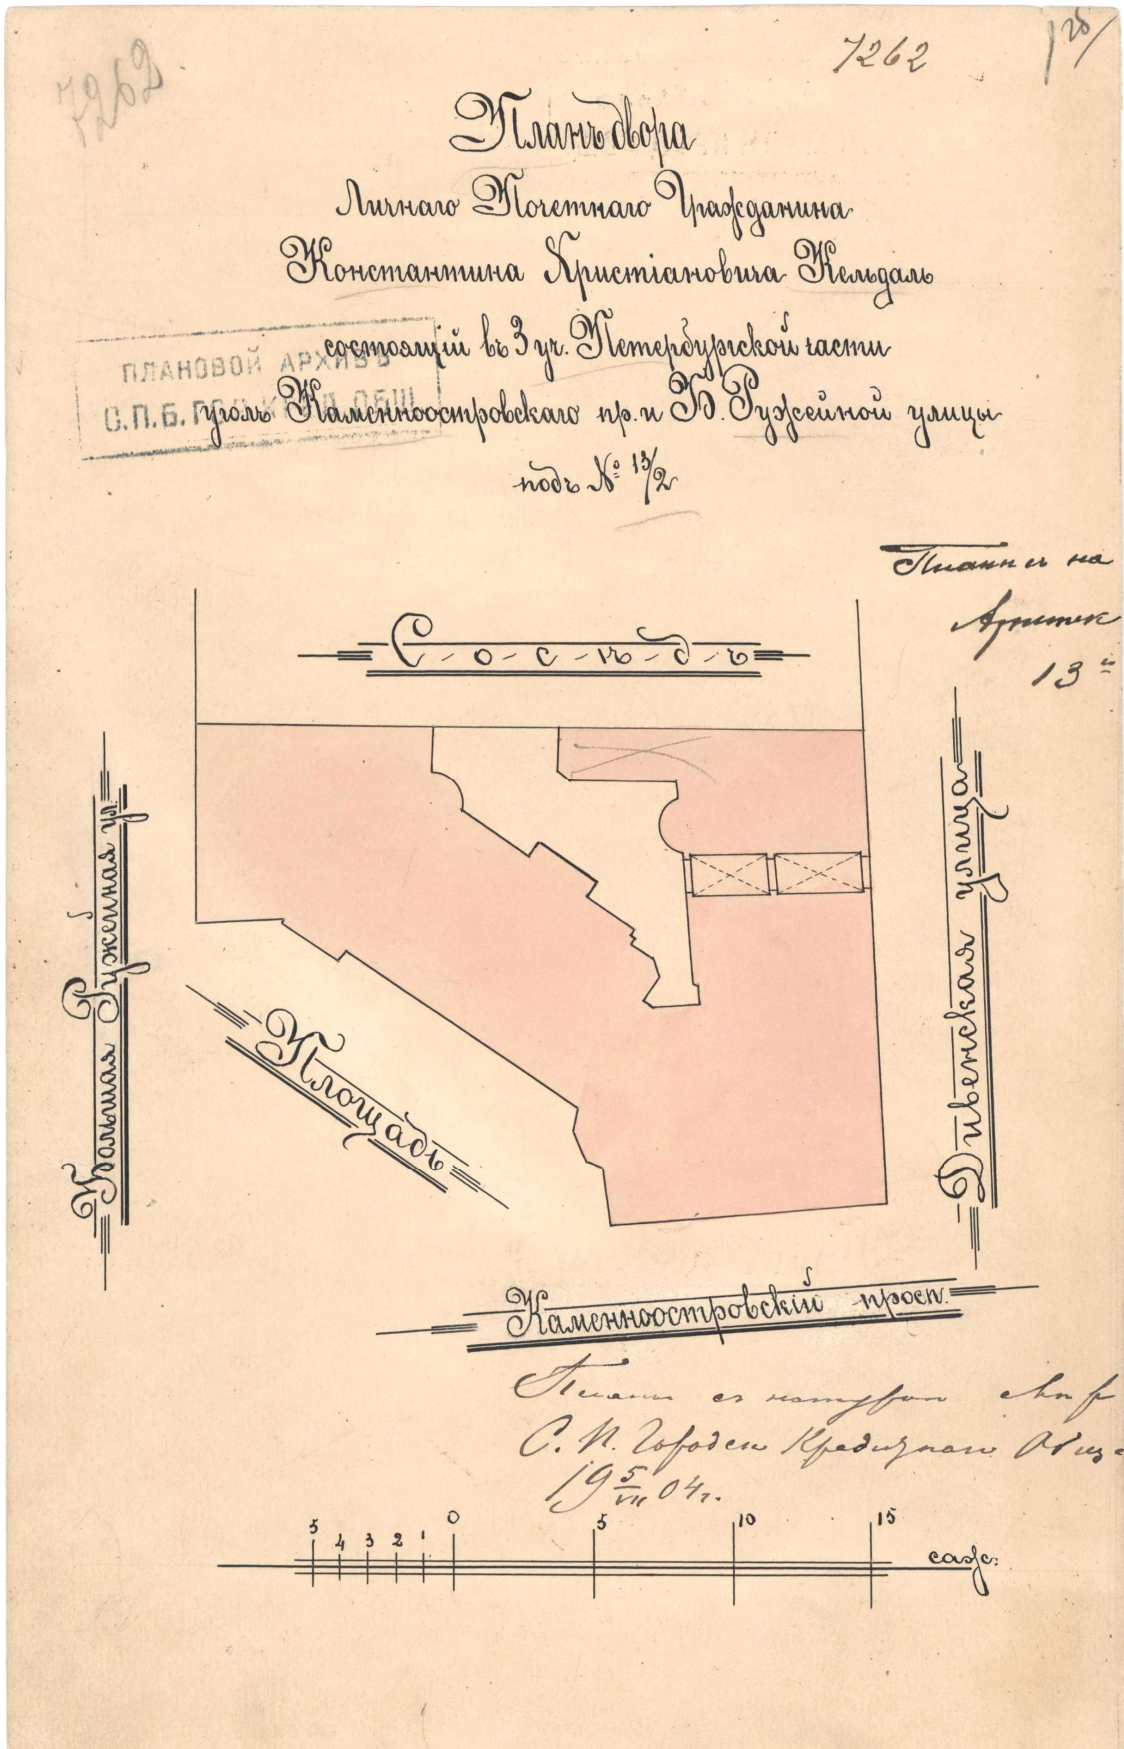 7262
7262
Планъ двора
Личнаго Почетнаго Гражданина
Константина Христіановича Кельдаль
состоящій въ 3 уч. Петербургской части
уголъ Каменноостровскаго пр. и Б. Ружейной улицы
подъ № 13/2
ПЛАНОВОЙ АРХИВЪ
С.П.Б. ОБЩ.
на
13
Сосѣдъ
Большая Ружейная ул.
Площадь
Дивенская улица
Каменноостровскій просп.
съ натурою
С. П. Городск Кредитнаго
19 5/VII 04 г.
5 4 3 2 1 0 5 10 15 саж: